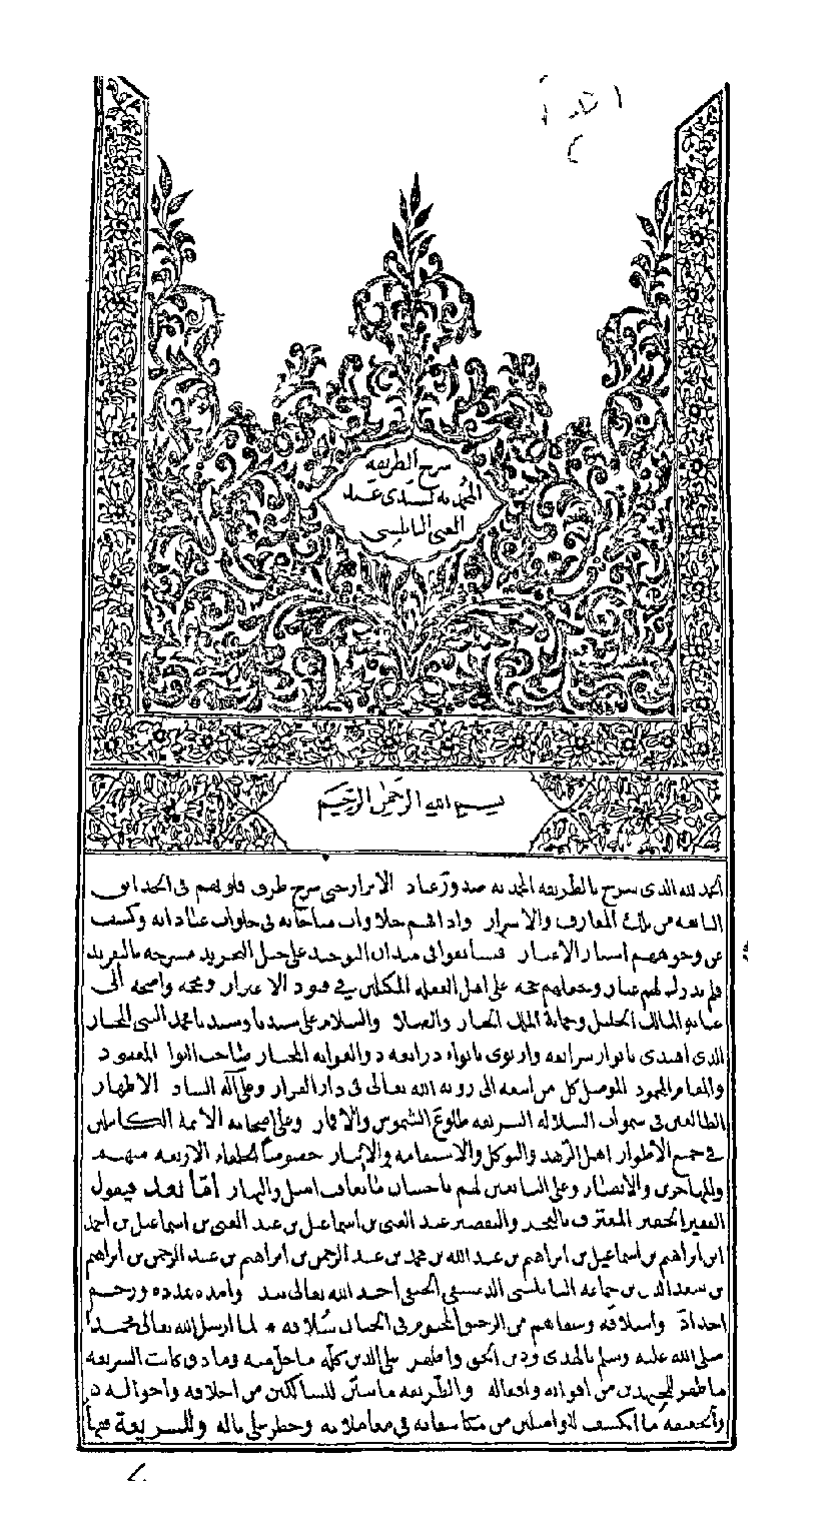 شرح الطريقه
المحمديه لسيدى عبد
الغنى النابلسى
بسم الله الرحمن الرحيم
الحمد لله الذى شرح بالطريقه المحمديه صدور عباد الابرار حتى سرح طرف قلوبهم فى الحدايق
اليانعه من المعارف والاسرار واذاقهم حلاوات مناجاته فى خلوات عباداته وكشف
عن وجوههم استار الاغيار فتسابقوا فى ميدان التوحيد على خيل التجريد مسرجه بالتفريد
فلم يدرك لهم غبار وجعلهم حجه على اهل الغفله المكبلين فى قيود الاغترار ومحجه واضحه الى
عباده المالك الجليل وحماية الملك الجبار والصلاة والسلام على سيدنا وسندنا محمد النبى المختار
الذى اهتدى بانوار شرائعه وارتوى بانواء ذرايعه ذوالقرابه المختار صاحب اللوا المعقود
والمقام المحمود الموصل كل من اتبعه الى رويه الله تعالى فى دار القرار وعلى آله الساده الاطهار
الطالعين فى سموات السلاله الشريفه طلوع الشموس والاقمار وعلى اصحابه الائمة الكاملين
فى جميع الاطوار اهل الزهد والتوكل والاستقامه والايثار خصوصاً الخلفاء الاربعه منهم
وللمهاجرين والانصار وعلى التابعين لهم باحسان ما تعاقب الليل والنهار امّا بعد فيقول
الفقير الحقير المعترف بالعجز والتقصير عبد الغنى بن اسماعيل بن عبد الغنى بن اسماعيل بن احمد
ابن ابراهيم بن اسماعيل بن ابراهيم بن عبد الله بن محمد بن عبد الرحمن بن ابراهيم بن عبد الرحمن بن ابراهيم
بن سعد الله بن جماعه النابلسى الدمشقى الحنفى اخذ الله تعالى بيده وامده بمدده ورحم
اجداده واسلافه وسقاهم من الرحيق المختوم فى الجنان سلافه * لما ارسل الله تعالى محمدا
صلى الله عليه وسلم بالهدى ودين الحق واظهره على الدين كله ما جل منه وما دق كانت الشريعه
ما ظهر للمجتهدين من اقواله وافعاله والطريقه ما استتر للسالكين من اخلاقه واحواله
والحقيقه ما انكشف للواصلين من مكاشفاته فى معاملاته وخطر على باله وللشريعة فيها